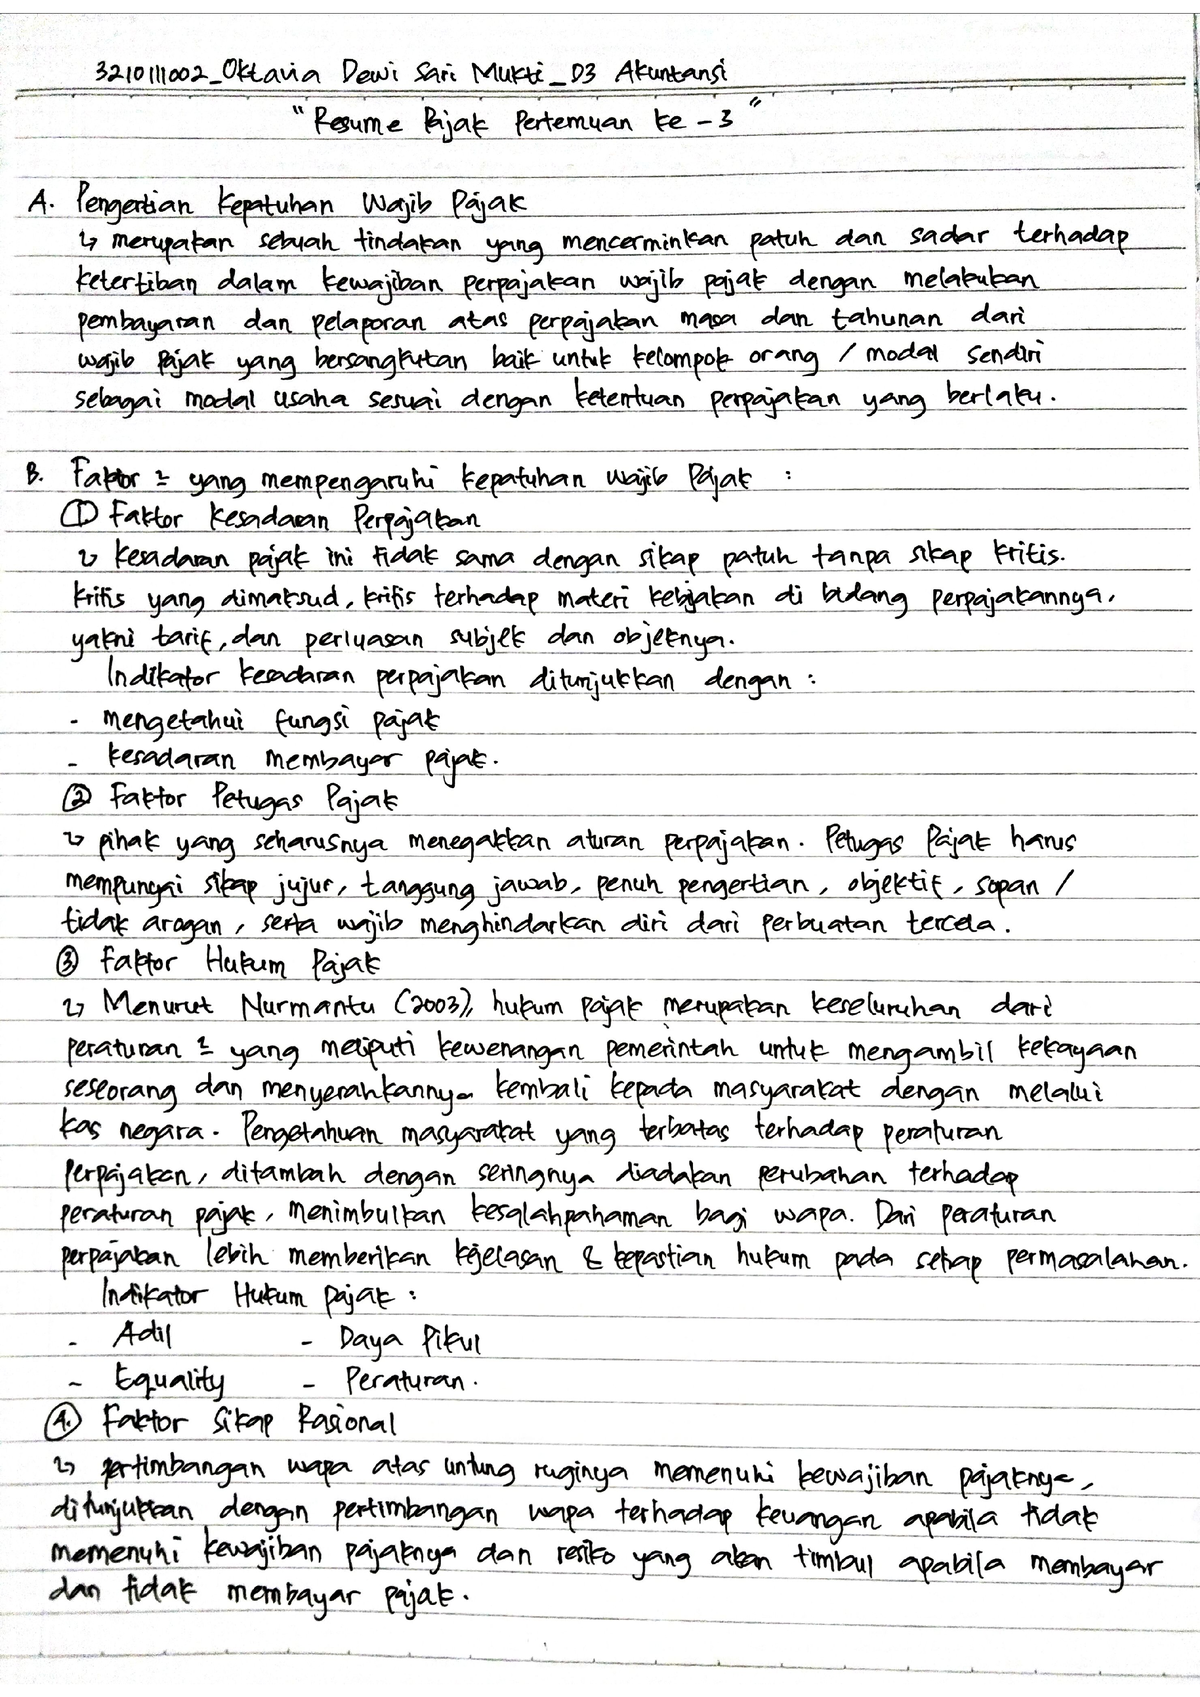 3210111002_Oktavia Dewi Sari Mukti_D3 Akuntansi
"Resume Pajak Pertemuan ke - 3"
A. Pengertian Kepatuhan Wajib Pajak
↳ merupakan sebuah tindakan yang mencerminkan patuh dan sadar terhadap
ketertiban dalam kewajiban perpajakan wajib pajak dengan melakukan
pembayaran dan pelaporan atas perpajakan masa dan tahunan dari
wajib pajak yang bersangkutan baik untuk kelompok orang / modal sendiri
sebagai modal usaha sesuai dengan ketentuan perpajakan yang berlaku.
B. Faktor 2 yang mempengaruhi kepatuhan wajib Pajak :
① Faktor Kesadaran Perpajakan
↳ kesadaran pajak ini tidak sama dengan sikap patuh tanpa sikap kritis.
kritis yang dimaksud, kritis terhadap materi kebijakan di bidang perpajakannya,
yakni tarif, dan perluasan subjek dan objeknya.
Indikator kesadaran perpajakan ditunjukkan dengan :
- mengetahui fungsi pajak
- kesadaran membayar pajak.
② Faktor Petugas Pajak
↳ pihak yang seharusnya menegakkan aturan perpajakan. Petugas Pajak harus
mempunyai sikap jujur, tanggung jawab, penuh pengertian, objektif, sopan /
tidak arogan, serta wajib menghindarkan diri dari perbuatan tercela.
③ Faktor Hukum Pajak
↳ Menurut Nurmantu (2003), hukum pajak merupakan keseluruhan dari
peraturan 2 yang meliputi kewenangan pemerintah untuk mengambil kekayaan
seseorang dan menyerahkannya kembali kepada masyarakat dengan melalui
kas negara. Pengetahuan masyarakat yang terbatas terhadap peraturan
Perpajakan, ditambah dengan seringnya diadakan perubahan terhadap
peraturan pajak, menimbulkan kesalahpahaman bagi wapa. Dari peraturan
perpajakan lebih memberikan kejelasan & kepastian hukum pada setiap permasalahan.
Indikator Hukum pajak :
- Adil - Daya Pikul
- Equality - Peraturan.
④ Faktor Sikap Rasional
↳ pertimbangan wapa atas untung ruginya memenuhi kewajiban pajaknya,
ditunjukkan dengan pertimbangan wapa terhadap keuangan apabila tidak
memenuhi kewajiban pajaknya dan resiko yang akan timbul apabila membayar
dan tidak membayar pajak.